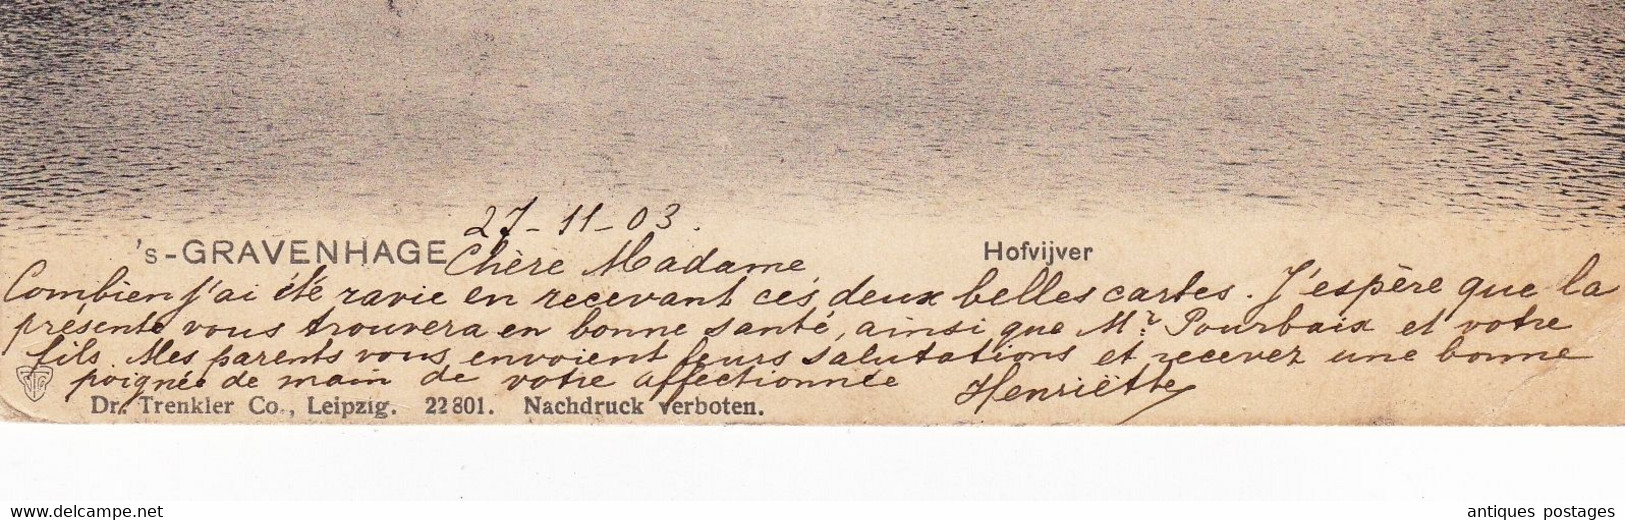 27-11-03.
's-GRAVENHAGE Chère Madame, Hofvijver
Combien j'ai été ravie en recevant ces deux belles cartes. J'espère que la
présente vous trouvera en bonne santé, ainsi que Mr Pourbaix et votre
fils. Mes parents vous envoient leurs salutations et recevez une bonne
poignée de main de votre affectionnée Henriëtte
Dr. Trenkler Co., Leipzig. 22801. Nachdruck verboten.
www.delcampe.net
antiques postages